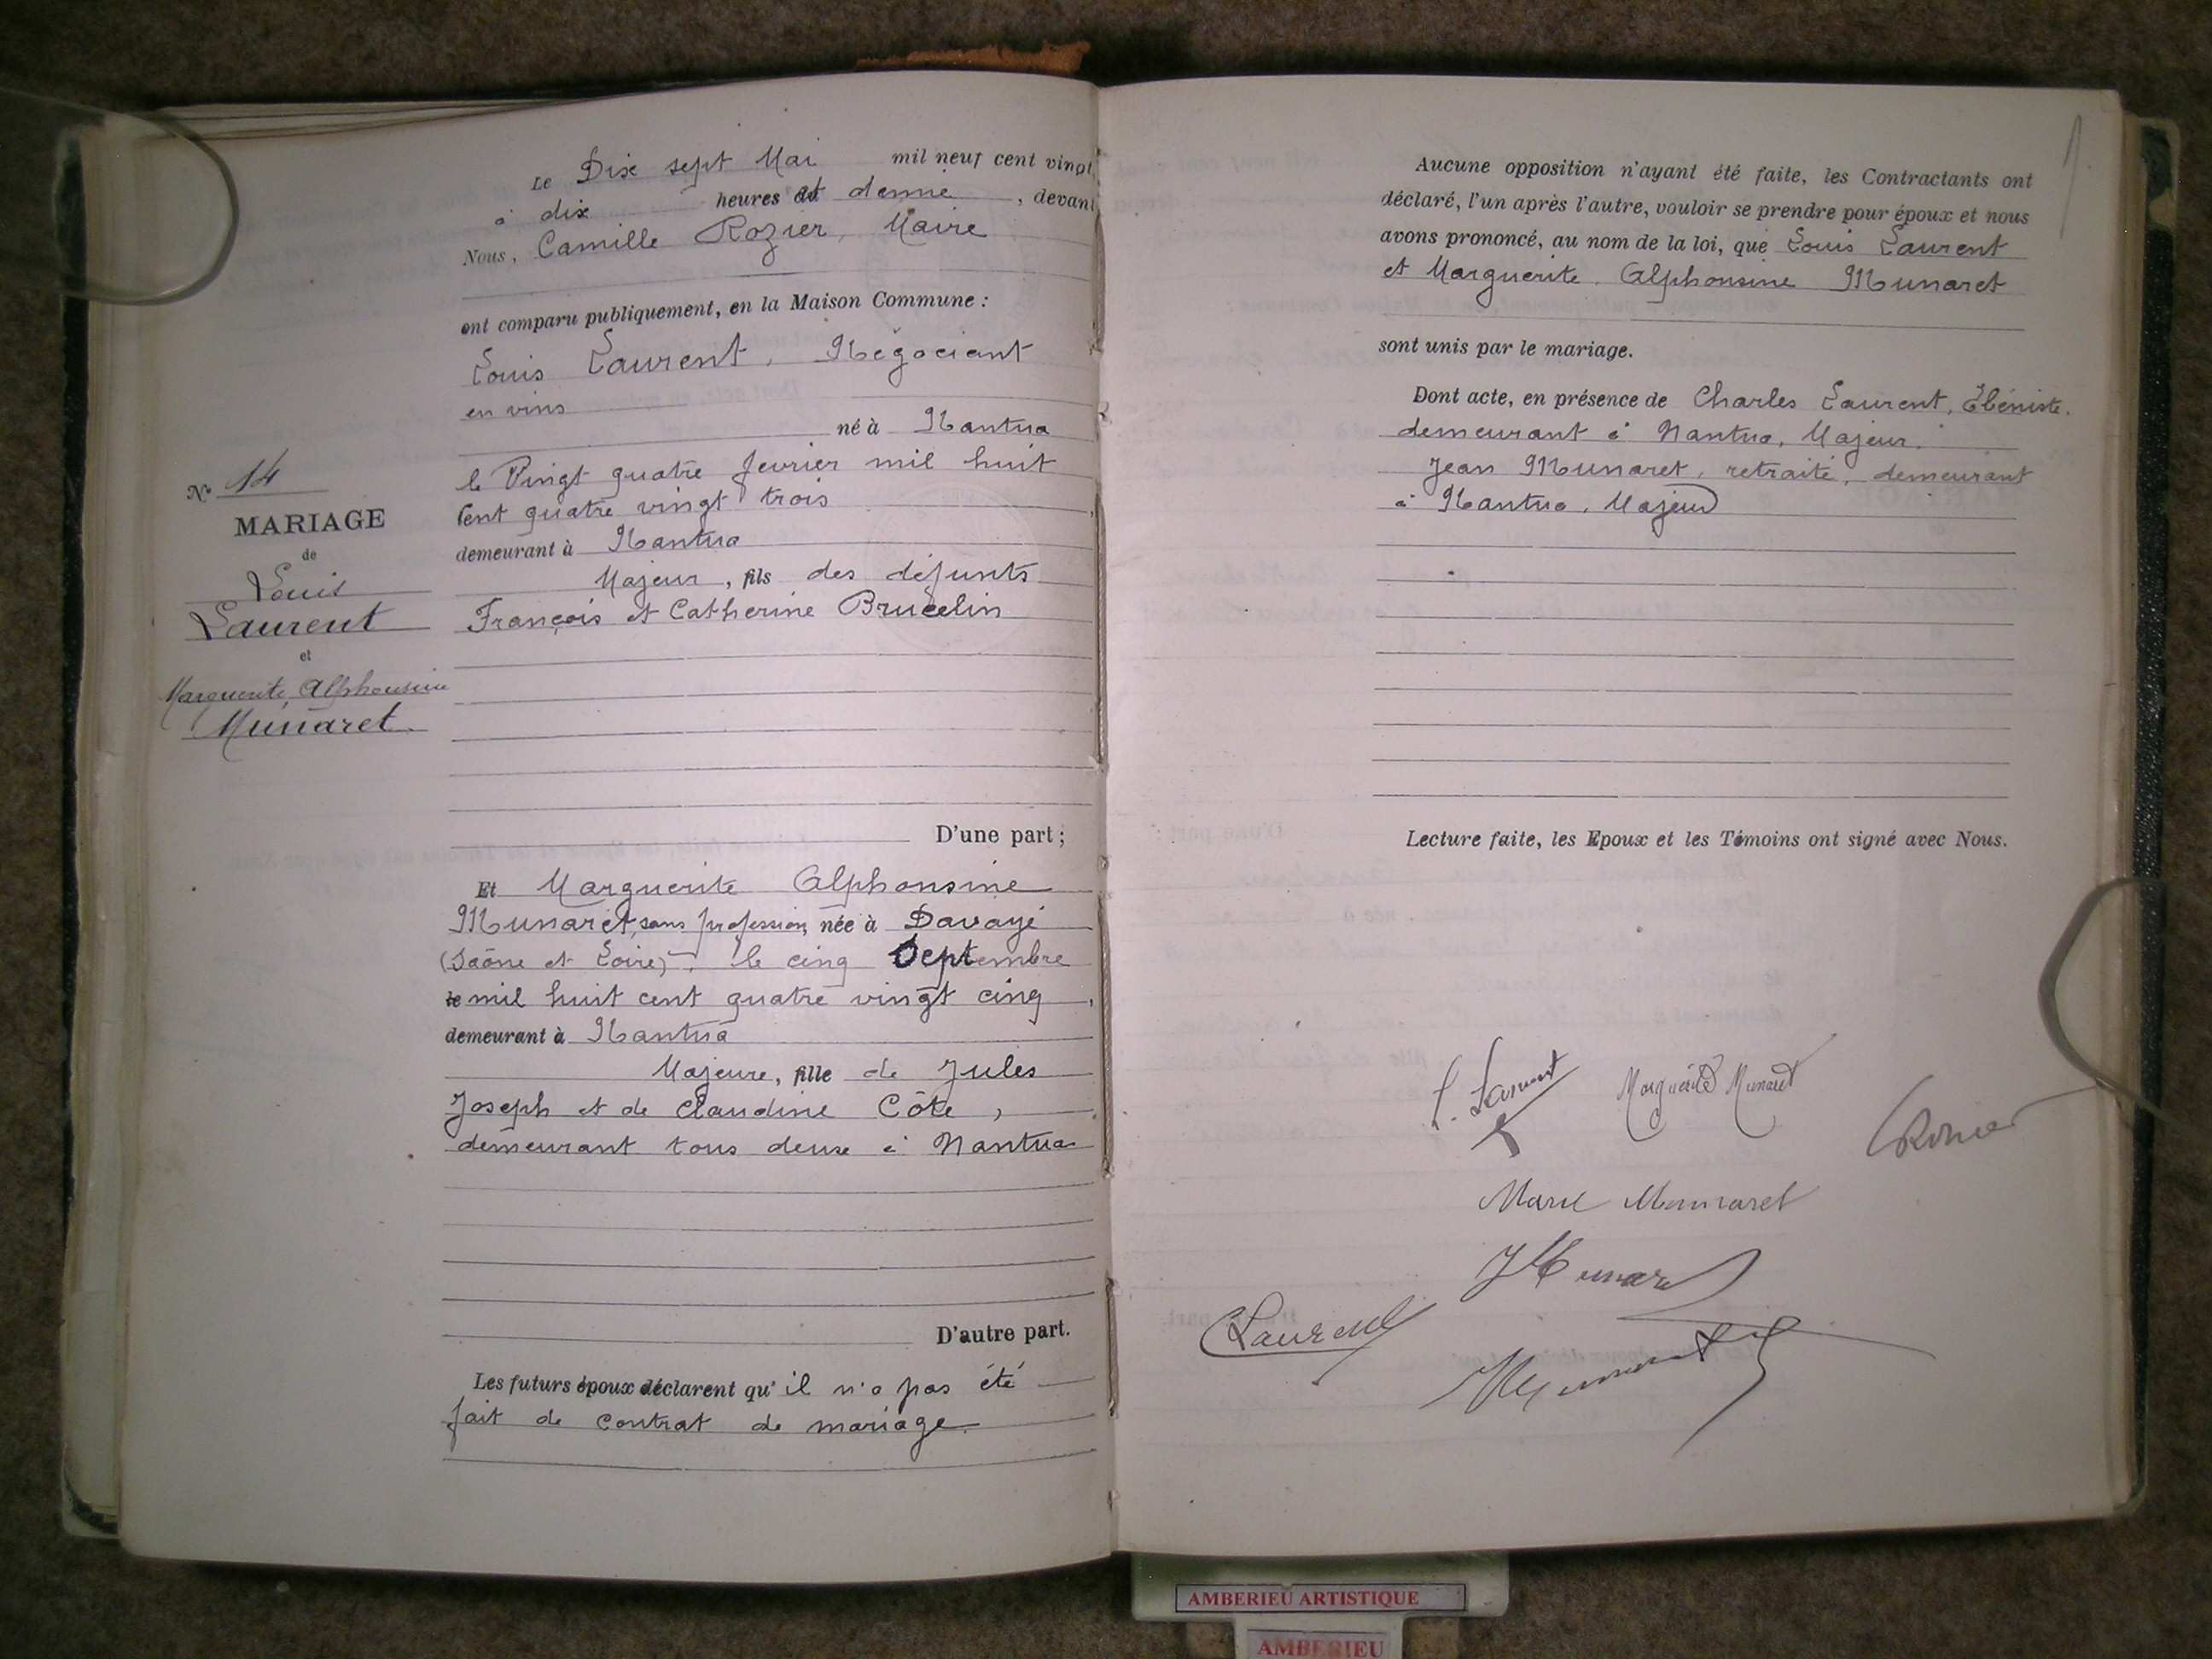 Le Dix sept Mai mil neuf cent vingt,
à dix heures et demie, devant
Nous, Camille Rozier, Maire
ont comparu publiquement, en la Maison Commune :
Louis Laurent, Négociant
en vins
né à Nantua
le Vingt quatre février mil huit
cent quatre vingt trois
demeurant à Nantua
Majeur, fils des défunts
François et Catherine Brucelin
N° 14
MARIAGE
de
Louis
Laurent
et
Marguerite, Alphonsine
Munaret
D'une part ;
Et Marguerite Alphonsine
Munaret, sans profession, née à Davayé
(Saône et Loire), le cinq Septembre
mil huit cent quatre vingt cinq,
demeurant à Nantua
Majeure, fille de Jules
Joseph et de Claudine Côte,
demeurant tous deux à Nantua
D'autre part.
Les futurs époux déclarent qu'il n'a pas été
fait de contrat de mariage.
Aucune opposition n'ayant été faite, les Contractants ont
déclaré, l'un après l'autre, vouloir se prendre pour époux et nous
avons prononcé, au nom de la loi, que Louis Laurent
et Marguerite Alphonsine Munaret
sont unis par le mariage.
Dont acte, en présence de Charles Laurent, Ébéniste,
demeurant à Nantua, Majeur.
Jean Munaret, retraité, demeurant
à Nantua, Majeur
Lecture faite, les Epoux et les Témoins ont signé avec Nous.
L. Laurent
Marguerite Munaret
CRozier
Marie Munaret
JMunaret
CLaurent
AMBERIEU ARTISTIQUE
AMBERIEU